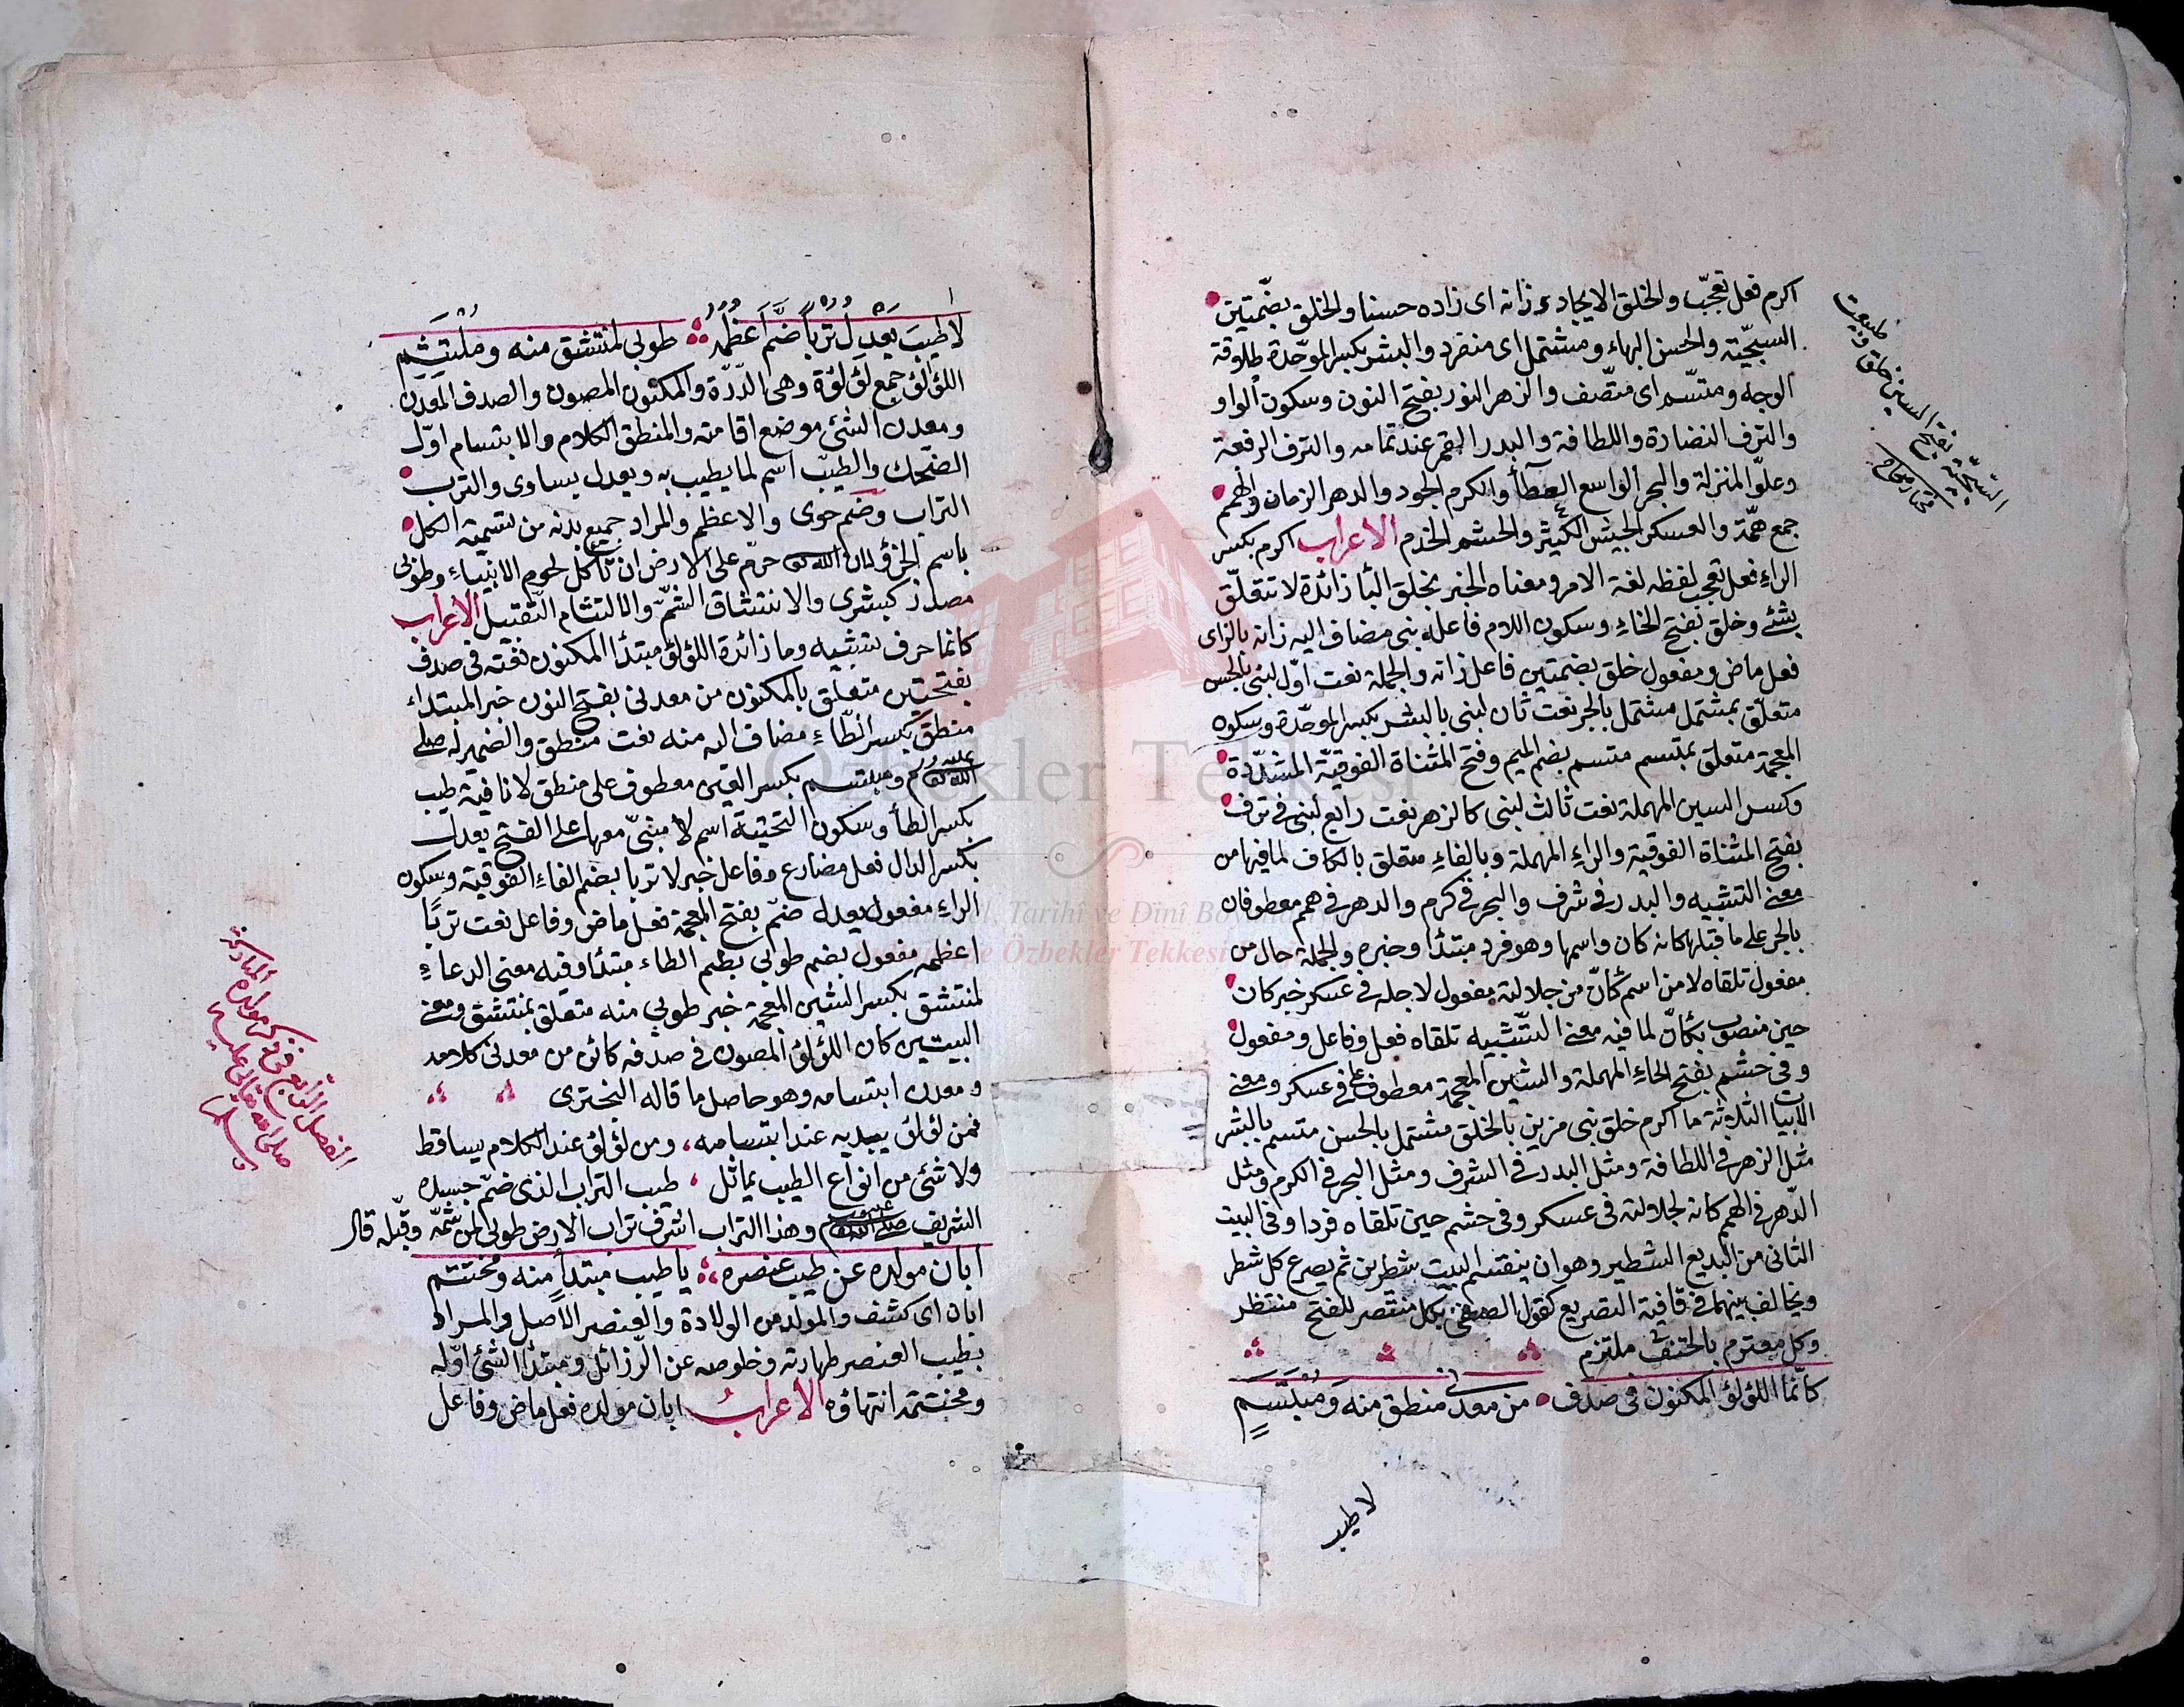 اكرم فعل تعجّب والخلق الايجاد وزانه اى زاده حسنا والخلق بضمّتين
السجيّة والحسن البهاء ومشتمل اى منفرد والبشر بكسر الموحّدة طلاوقة
الوجه ومتّسم اى متّصف والزهر النور بفتح النون وسكون الواو
والترف النضارة واللطافة والبدر القمر عند تمامه والشرف الرفعة
وعلوّ المنزلة والبحر الواسع العطأ والكرم الجود والدهر الزمان والهمم
جمع همّة والعسكر الجيش الكثير والحشم الخدم الاعراب اكرم بكسر
الراء فعل تعجب لفظه لفظ الامر ومعناه الخبر بخلق البأ زائدة لا تتعلّق
بشئ وخلق بفتح الخاء وسكون اللام فاعله نبى مضاف اليه زانه بالزاى
فعل ماض ومفعول خلق بضمتين فاعل زانه والجملة نعت اوّل لنبى بالحسن
متعلّق بمشتمل مشتمل بالجر نعت ثان لنبى بالبشر بكسر الموحّدة وسكون
المعجمة متعلق بمتسم متسم بضم الميم وفتح المثناة الفوقيّة المشدّدة
وكسر السين المهملة نعت ثالث لنبى كالزهر نعت رابع لنبى فى ترف
بفتح المثناة الفوقية والراء المهملة وبالفاء متعلق بالكاف لما فيها من
معنى التشبيه والبدر فى شرف والبحر فى كرم والدهر فى همم معطوفان
بالجر على ما قبلها كانه كان واسمها وهو فرد مبتدأ وخبره والجملة حال من
مفعول تلقاه لا من اسم كأنّ من جلالته مفعول لاجله فى عسكر خبر كان
حين منصوب بكأنّ لما فيه معنى التّشبيه تلقاه فعل وفاعل ومفعول
وفى حشم بفتح الحاء المهملة والشين المعجمة معطوف على فى عسكر ومعنى
الابيات الثلاثة ما اكرم خلق نبى مزين بالخلق مشتمل بالحسن متسم بالبشر
مثل الزهر فى اللطافة ومثل البدر فى الشرف ومثل البحر فى الكرم ومثل
الدّهر فى الهمم كانه لجلالته فى عسكر وفى حشم حين تلقاه فردا وفى البيت
الثانى من البديع التشطير وهو ان ينقسم البيت شطرين ثم يصرع كل شطر
ويخالف بينهما فى قافية التصريع كقول الصفى بكل منتصر للفتح منتظر
وكل معتزم بالحتف ملتزم
كانّما اللؤلؤ المكنون فى صدف من معدنى منطق منه ومبتسم
لا طيب
السّجيّة بفتح السين خلق وطبيعت
مختار صحاح
لا طيبَ يعدل ترباً ضمّ أعظمه طوبى لمنتشق منه وملتثم
اللؤلؤ جمع لؤلؤة وهى الدّرّة والمكنون المصون والصدف المعدن
ومعدن الشئ موضع اقامته والمنطق الكلام والابتسام اوّل
الضّحك والطيب اسم لما يطيب به ويعدل يساوى والترب
التراب وضم حوى والاعظم والمراد جميع بدنه من تسمية الكل
باسم الجزؤ لان الله حرّم على الارض ان تأكل لحوم الانبياء وطوبى
مصدر كبشرى والانتشاق الشمّ والالتثام التقبيل الاعراب
كانما حرف تشبيه وما زائدة اللؤلؤ مبتدأ المكنون نعته فى صدف
بفتحتين متعلق بالمكنون من معدنى بفتح النون خبر المبتداء
منطق بكسر الطّاء مضاف اليه منه نعت منطق والضمير له صلى
الله عليه وم ومبتسم بكسر السين معطوف على منطق لا نافية طيب
بكسر الطأ وسكون التحتية اسم لا مبنىّ معها على الفتح يعدل
بكسر الدال فعل مضارع وفاعل خبر لا تربا بضم الفاء الفوقية وسكون
الراء مفعول يعدل ضمّ بفتح المعجمة فعل ماض وفاعل نعت تربًا
اعظمه مفعول بضم طوبى بضم الطاء مبتدأ وفيه معنى الدعاء
لمنتشق بكسر الشين المعجمة خبر طوبى منه متعلق بمنتشق ومعنى
البيتين كان اللؤلؤ المصون فى صدفه كائن من معدنى كلامه
ومعدن ابتسامه وهو حاصل ما قاله البخترى
فمن لؤلؤ يبديه عند ابتسامه ومن لؤلؤ عند الكلام يساقط
ولا شئ من انواع الطيب يماثل طيب التراب الذى ضمّ جسده
الشريف وهذا التراب اشرف تراب الارض طوبى لمن شمّه وقبّله قال
ابان مولده عن طيب عنصره يا طيب مبتدأ منه ومختتم
ابان اى كشف والمولد من الولادة والعنصر الاصل والمراد
بطيب العنصر طهارته وخلوصه عن الرّزائل ومبتدأ الشئ اوّله
ومختتمه انتهاؤه الاعراب ابان مولده فعل ماض وفاعل
الفصل الرابع فى ذكر مولده المباركة
صلى الله تعالى عليه